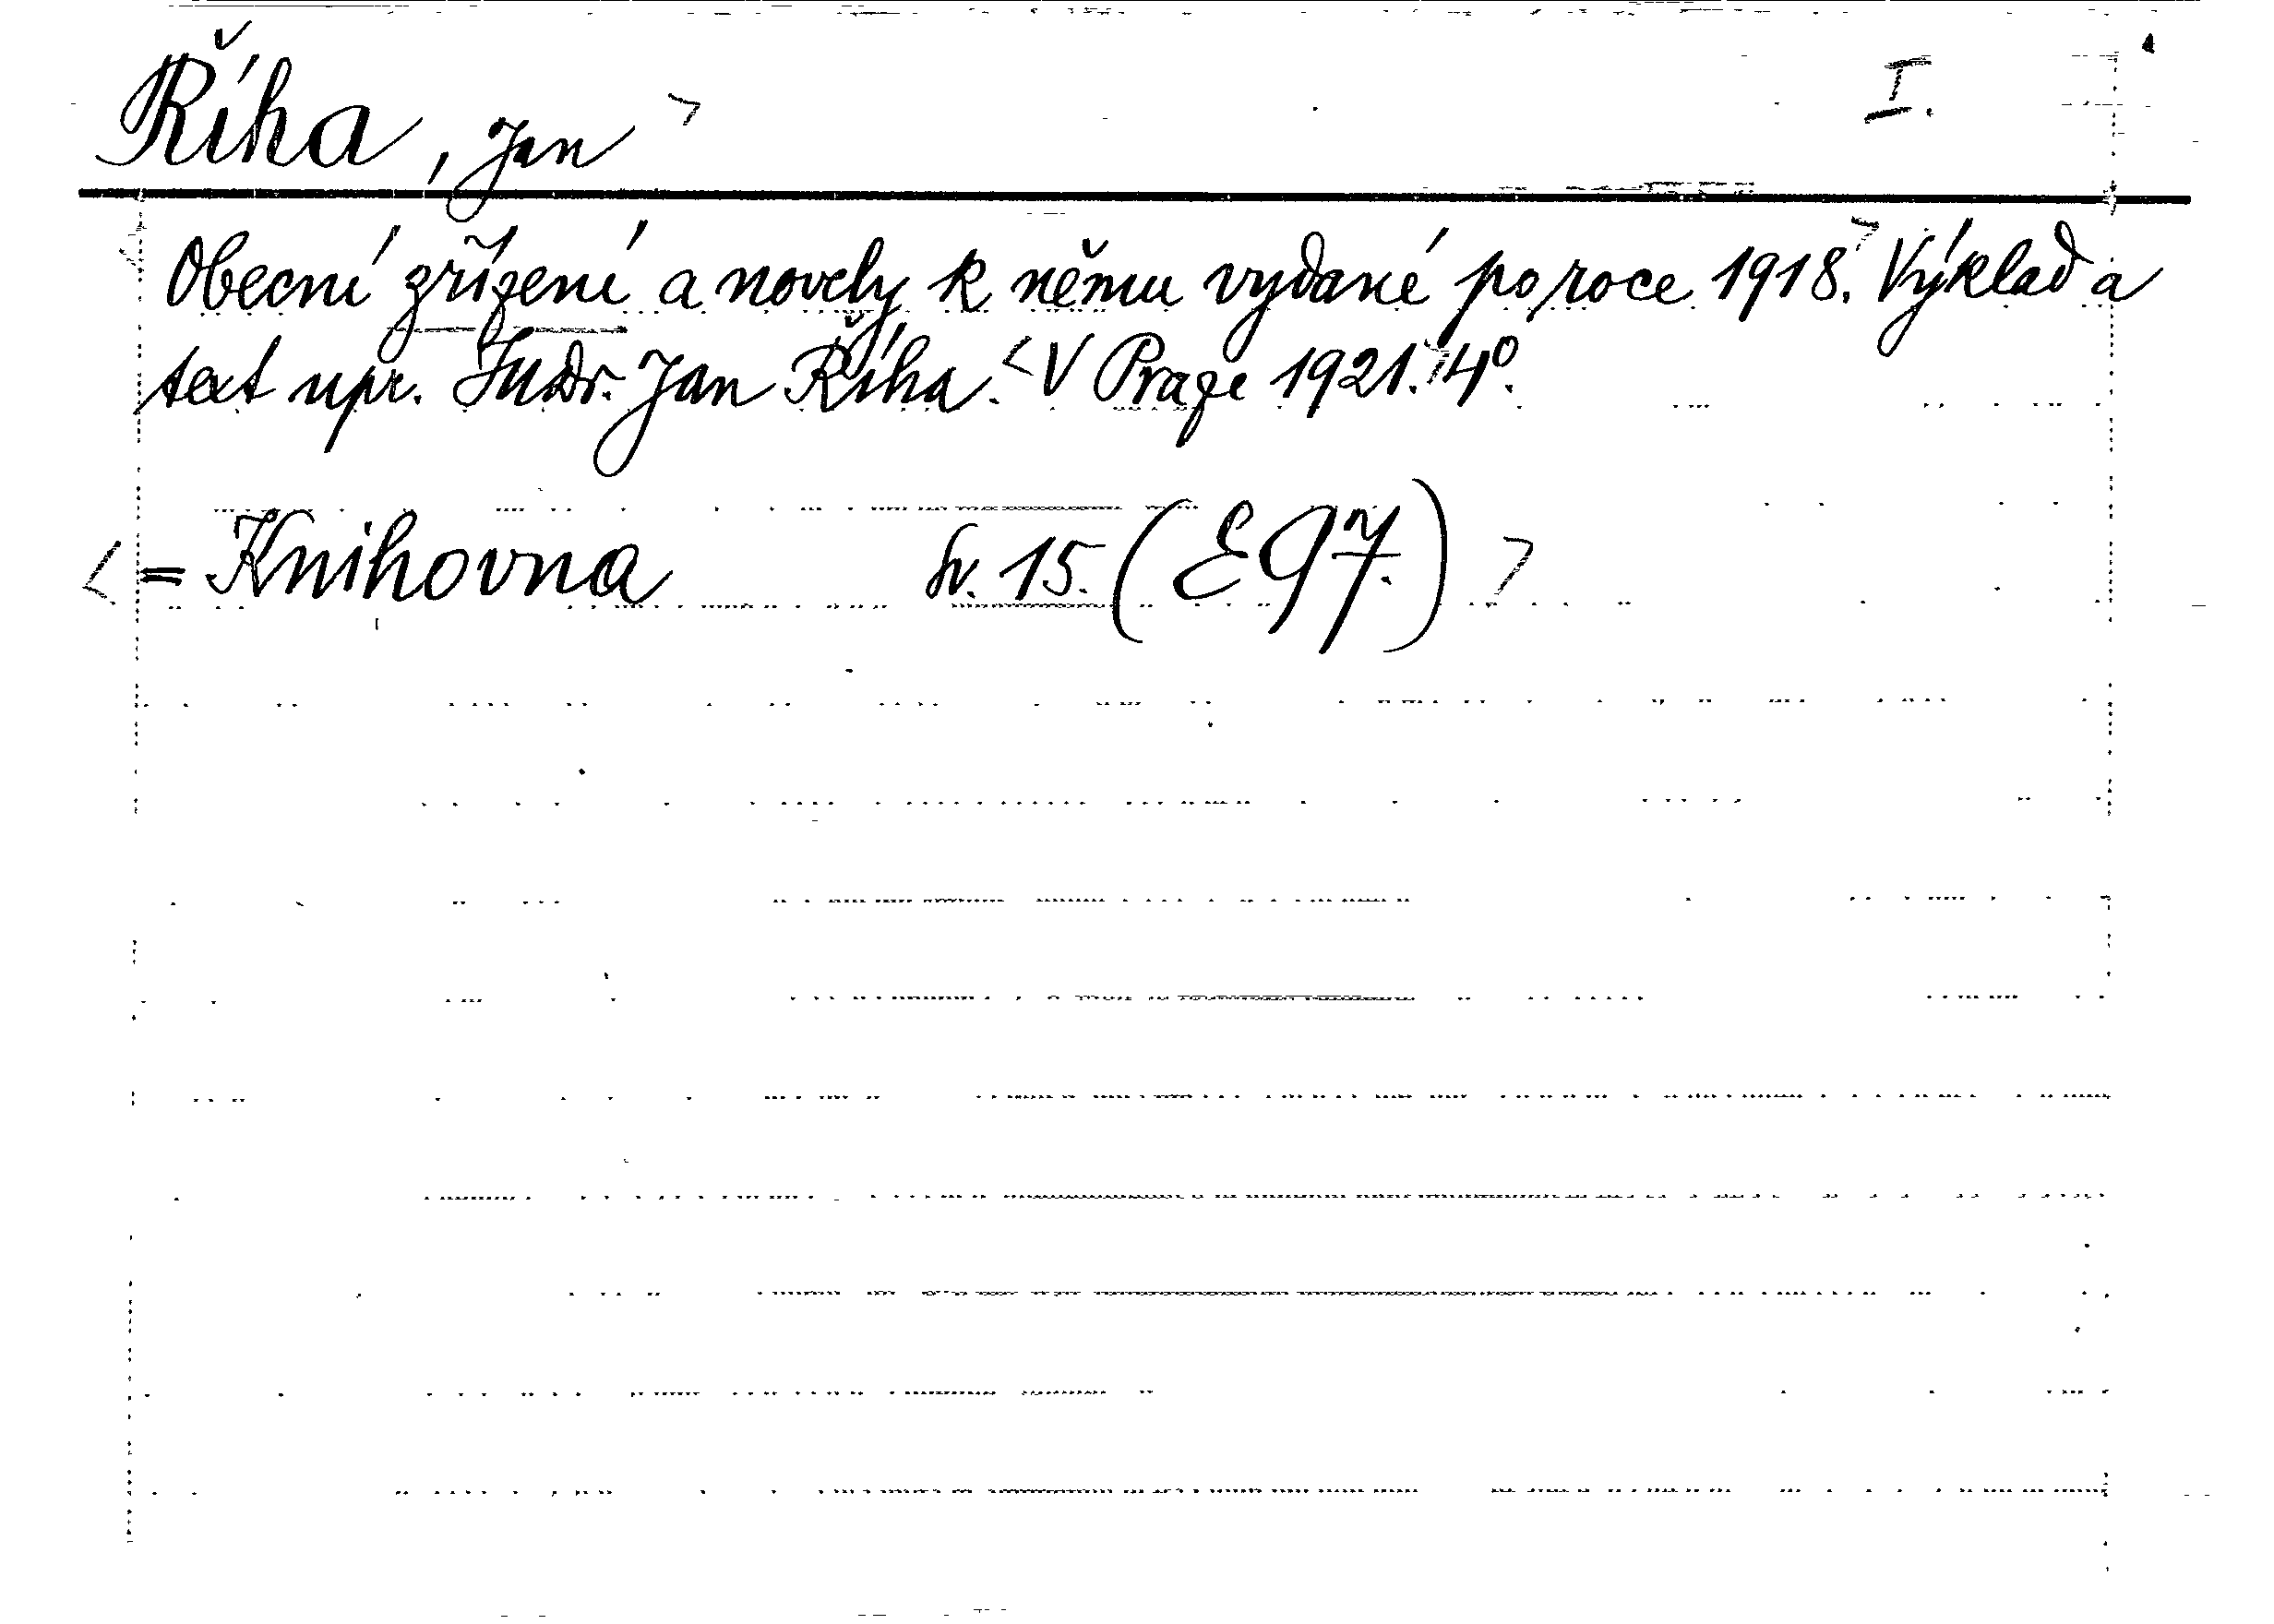 Říha, Jan > I.
Obecní zřízení a novely k němu vydané po roce 1918.> Výklad a
text upr. JUDr. Jan Říha. <V Praze 1921.> 4°.
<= Knihovna Sv. 15. (E97.) >